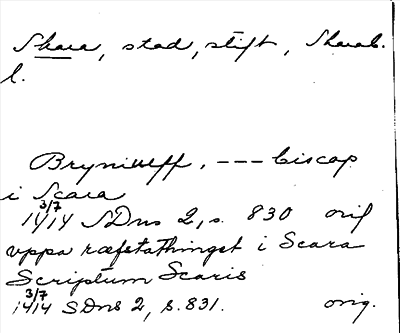 Skara, stad, stift, Skarab.
l.
Bryniulff, --- biscop
i Scara
3/7
1414 SDns 2, s. 830 orig
vppa ræfstathinget i Scara
Scriptum Scaris
3/7
1414 SDns 2, s. 831. orig.